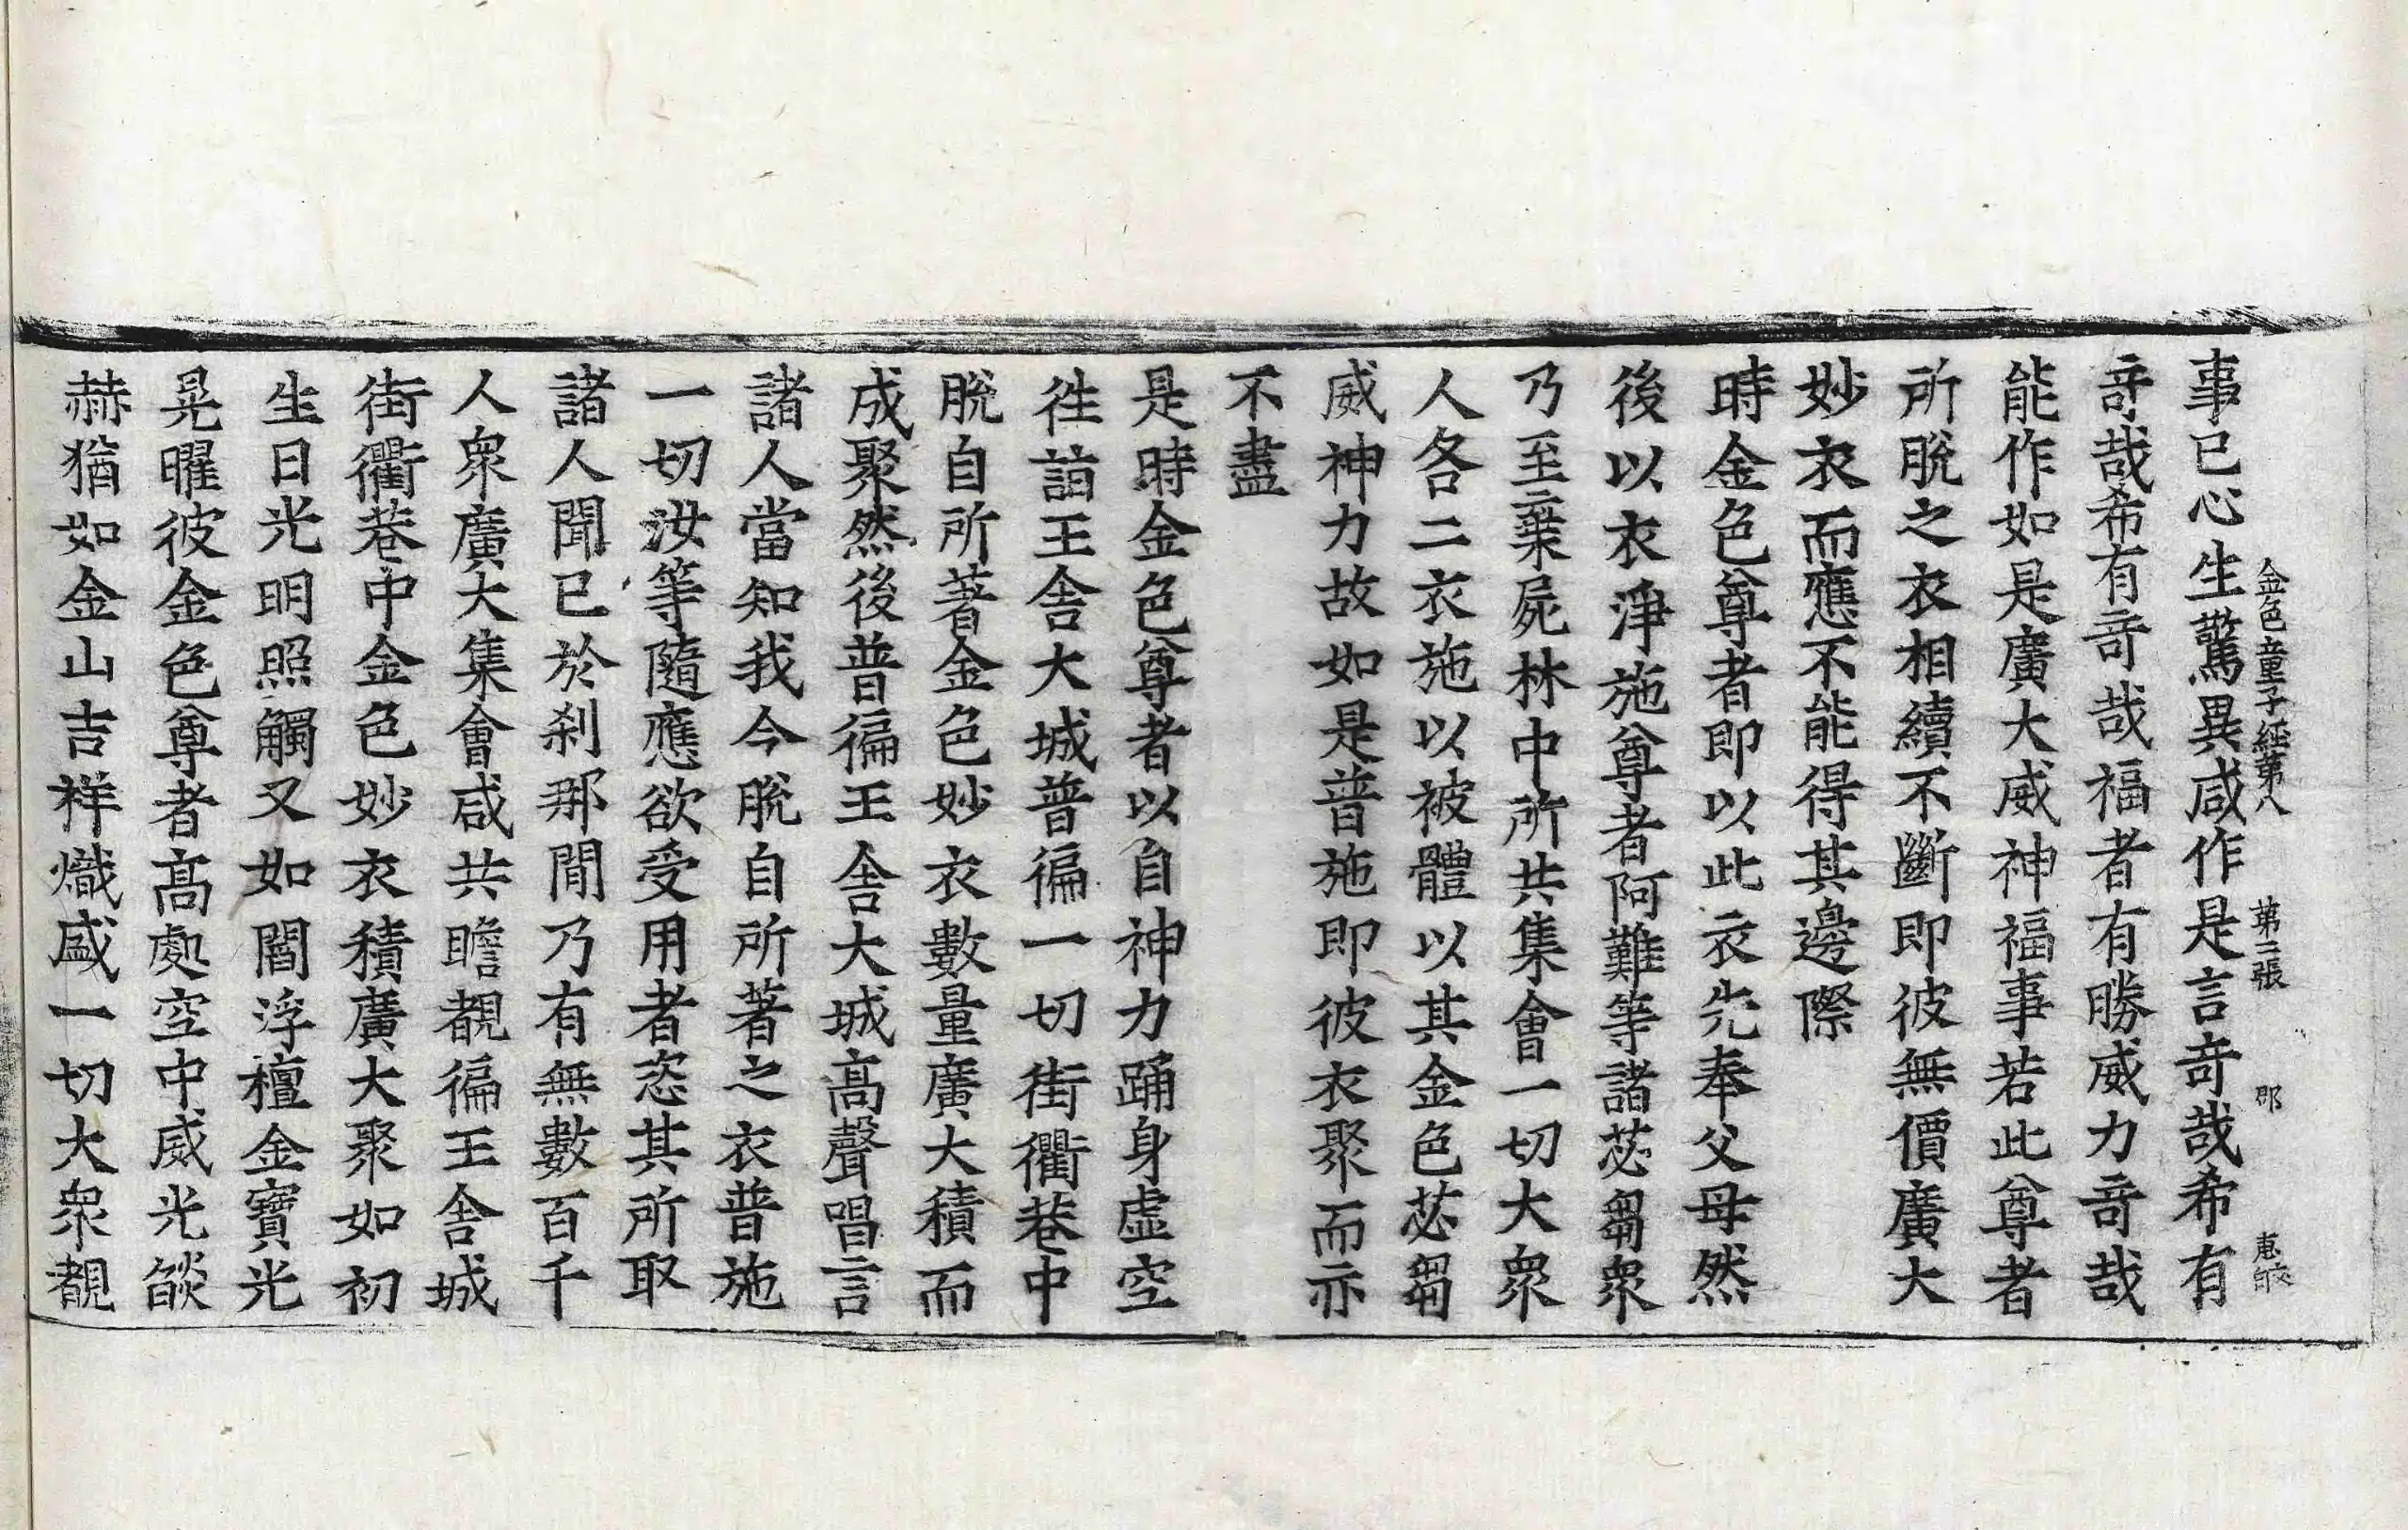 金色童子經第八　第三張　郡　惠印
事已心生驚異咸作是言竒哉希有
竒哉希有竒哉福者有勝威力竒哉
能作如是廣大威神福事若此尊者
所脫之衣相續不斷即彼無價廣大
妙衣而應不能得其邊際
時金色尊者即以此衣先奉父母然
後以衣淨施尊者阿難等諸苾芻衆
乃至棄屍林中所共集會一切大衆
人各二衣施以被體以其金色苾芻
威神力故如是普施即彼衣聚而亦
不盡
是時金色尊者以自神力踊身虛空
徃詣王舍大城普徧一切街衢巷中
脫自所著金色妙衣數量廣大積而
成聚然後普徧王舍大城髙聲唱言
諸人當知我今脫自所著之衣普施
一切汝等隨應欲受用者恣其所取
諸人聞已於刹那間乃有無數百千
人衆廣大集會咸共瞻覩徧王舍城
街衢巷中金色妙衣積廣大聚如初
生日光明照觸又如閻浮檀金寶光
晃曜彼金色尊者髙處空中威光燄
赫猶如金山吉祥熾盛一切大衆覩